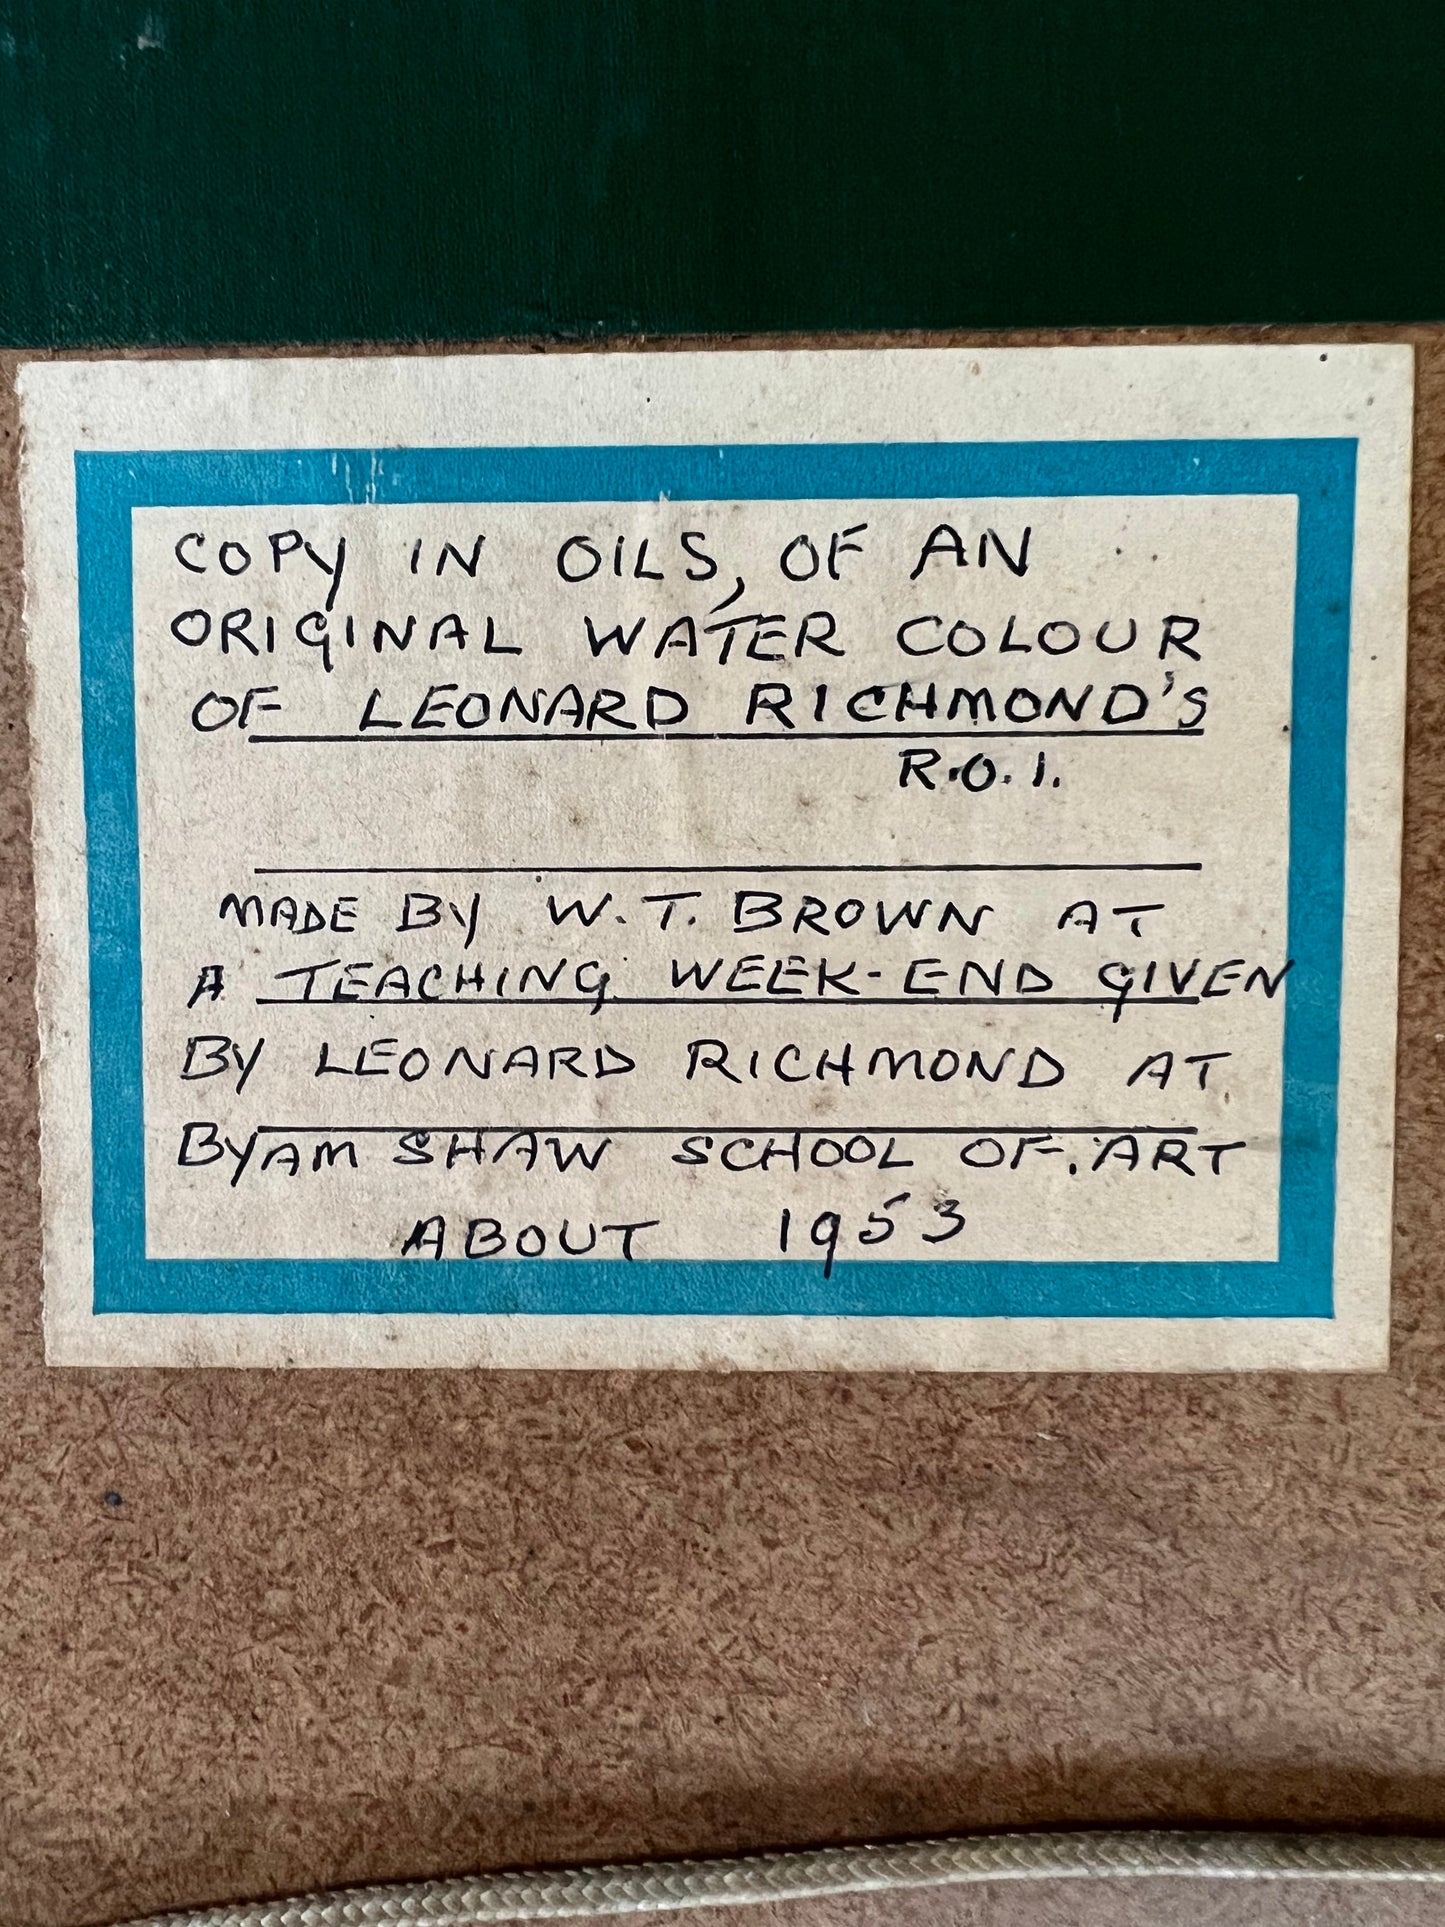 COPY IN OILS, OF AN
ORIGINAL WATER COLOUR
OF LEONARD RICHMOND'S
R.O.I.
MADE BY W.T. BROWN AT
A TEACHING WEEK-END GIVEN
BY LEONARD RICHMOND AT
BYAM SHAW SCHOOL OF. ART
ABOUT 1953